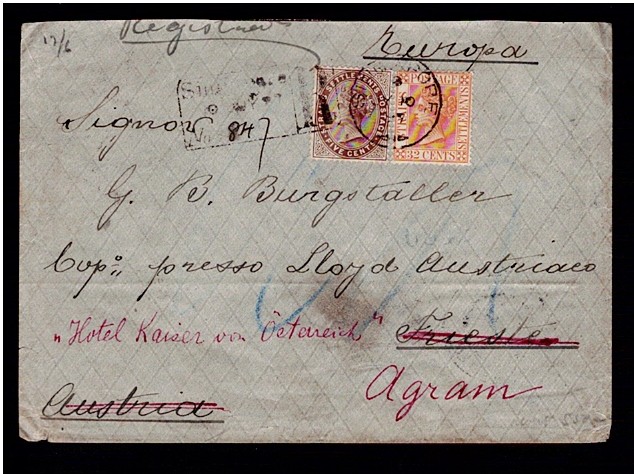 12/6
Registered
Europa
STRAITS SETTLEMENTS POSTAGE
FIVE CENTS
POSTAGE
32 CENTS
847
Signor
G. B. Burgstaller
Copº presso Lloyd Austriaco
"Hotel Kaiser von Österreich"
Trieste
Agram
Austria